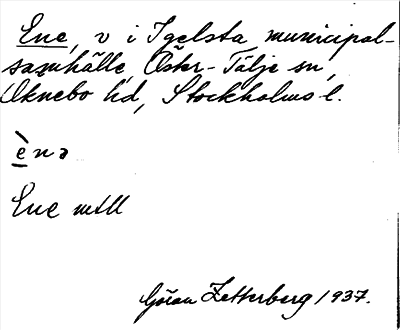 Ene, v i Igelsta municipal-
samhälle, Öster-Tälje sn,
Öknebo hd, Stockholms l.
ènə
Ene mtll
Göran Zetterberg 1937.